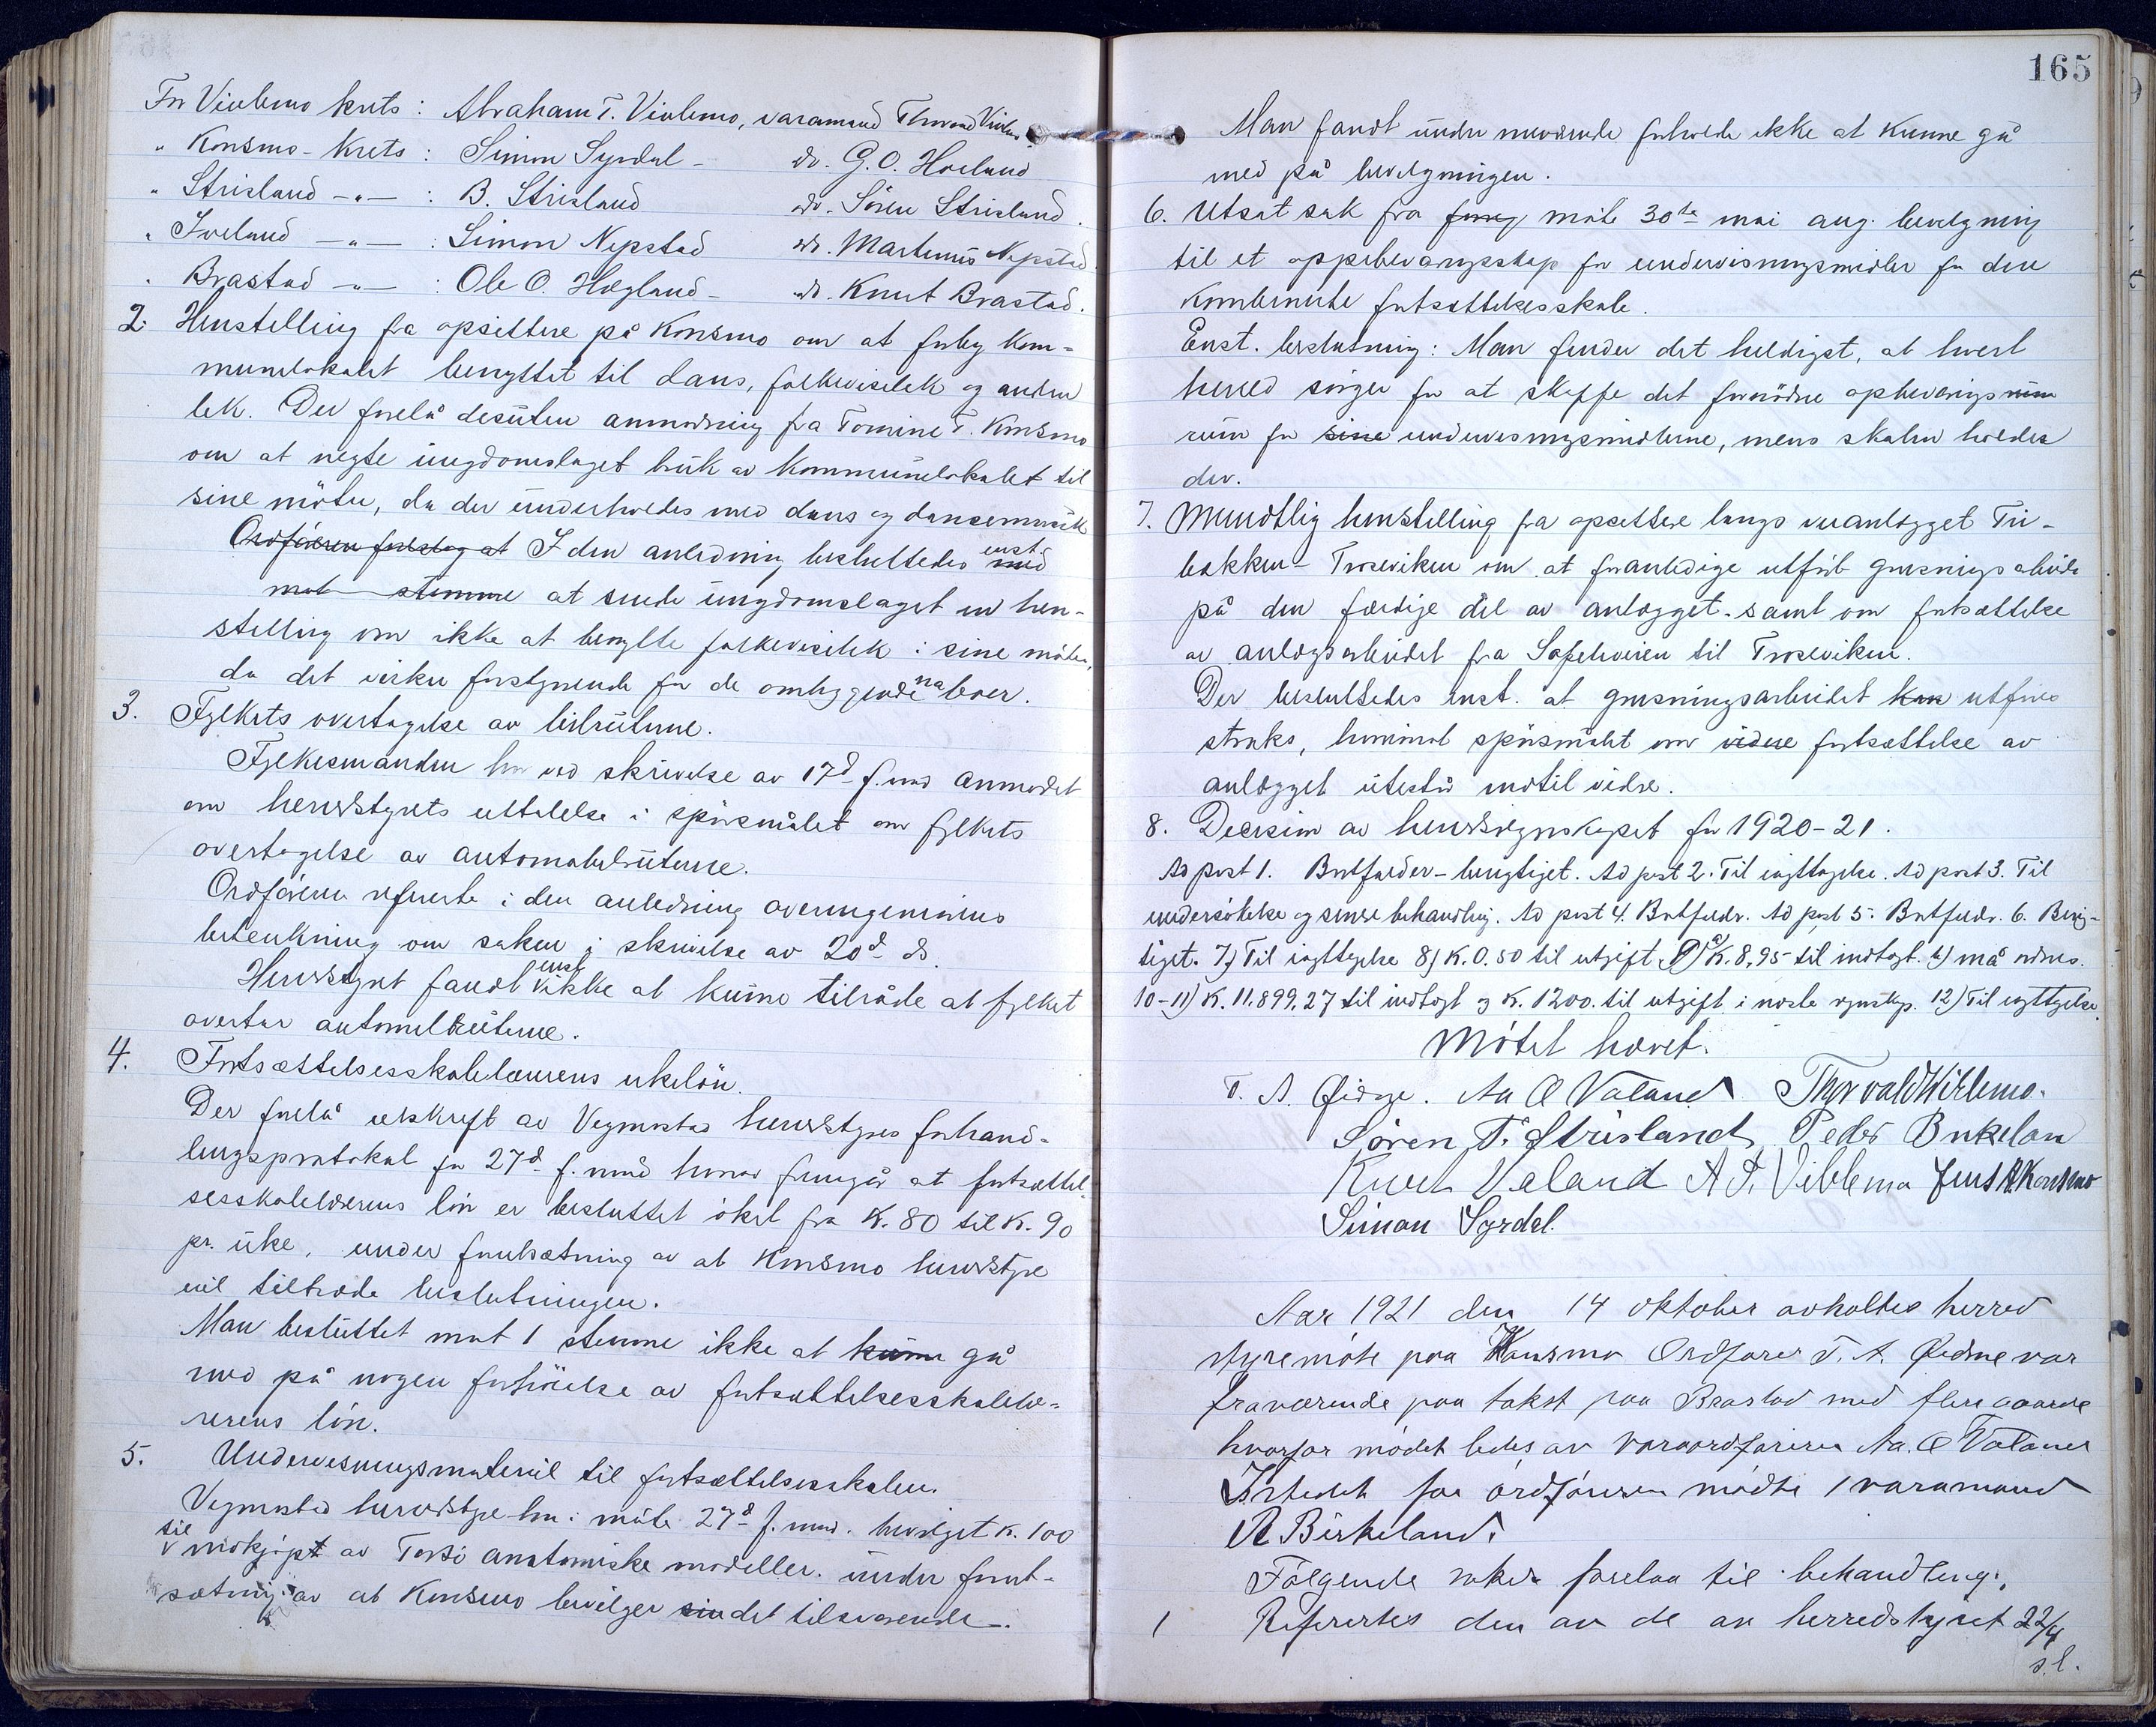 For Viblemo krets: Abraham T. Viblemo, varamand Thorvald Viblemo
" Konsmo-krets: Simon Syrdal - do. G. O. Hoeland
" Strisland -"- : B. Strisland do. Sören Strisland.
" Iveland -"- : Simon Nepstad do. Martinus Nepstad.
" Brastad -"- : Ole O. Hægland - do. Knut Brastad.
2. Henstilling fra opsittere på Konsmo om at forby kom-
munelokalet benyttet til dans, folkeviselek og anden
lek. Der forelå desuten anmodning fra Tomine T. Konsmo
om at negte ungdomslaget bruk av kommunelokalet til
sine möter, da der underholdes med dans og dansemusik
Ordföreren foreslog at I den anledning besluttedes enst. med
mot stemme at sende ungdomslaget en hen-
stilling om ikke at benytte folkeviselek i sine möter,
da det virker forstyrrende for de omliggende naboer.
3. Fylkets overtagelse av bilruterne.
Fylkesmanden har ved skrivelse av 17d f. md anmodet
om herredstyrets uttalelse i spörsmålet om fylkets
overtagelse av automobilruterne.
Ordföreren refererte i den anledning overingeniörens
betenkning om saken i skrivelse av 20d ds.
Herredstyret fandt enst. ikke at kunne tilråde at fylket
overtar automobilruterne.
4. Fortsættelsesskolelærerens ukelön.
Der forelå utskrift av Vegusdal herredstyres forhand-
lingsprotokol for 27d f. mnd hvorav fremgår at fortsættel-
sesskolelærerens lön er besluttet öket fra K. 80 til K. 90
pr. uke, under forutsætning av at Konsmo herredstyre
vil tiltræde beslutningen.
Man besluttet mot 1 stemme ikke at kunne gå
med på nogen forhöielse av fortsættelsesskolelæ-
rerens lön.
5. Undervisningsmateriel til fortsættelsesskolen.
herredstyre har i möte 27d f. mnd. bevilget K. 100
til indkjöpt av Torsö anatomiske modeller. under forut-
sætning av at Konsmo bevilger sin det tilsvarende.
165
Man fandt under nuværende forholde ikke at kunne gå
med på bevilgningen.
6. Utsat sak fra forrig möte 30te mai ang. bevilgning
til et oppebevaringsskap for undervisningsmidler for den
kombinerte fortsættelsesskole.
Enst. beslutning: Man finder det heldigst, at hvert
herred sörger for at skaffe det fornödne opbevarings rum
rum for sine undervisningsmidlerne, mens skolen holdes
der.
7. Mundtlig henstilling fra opsittere langs veianlægget Tri-
bakken - Troseviken om at foranledige utfört grusningsarbeide
på den færdige del av anlægget. samt om fortsættelse
av anlægsarbeidet fra til Troseviken.
Der besluttedes enst. at grusningsarbeidet kan utföres
straks, hvorimot spörsmålet om videre fortsættelse av
anlægget utestår indtil videre.
8. Decision av herredsregnskapet for 1920-21.
Ad post 1. Bortfalder - berigtiget. Ad post 2. Til iagttagelse. Ad post 3. Til
undersökelse og senere behandling. Ad post 4. Bortfalder. Ad post 5. Bortfalder. 6. Berig-
tiget. 7) Til iagttagelse 8) K. 0.50 til utgift. 9) a) K. 8,95 til indtægt. b) må ordnes.
10-11) K. 11.899,27 til indtægt og K. 1200. til utgift i næste regnskap. 12) Til iagttagelse.
Mötet hævet.
T. A. Øidne. Aa O Valand Thorvald Viblemo.
Sören T. Strisland Peder Birkelan
Knut Valand A. T. Viblemo Jens A. Konsmo
Simon Syrdal.
Aar 1921 den 14 oktober avholtes herred
styremöte paa Konsmo Ordförer T. A. Øidne var
fraværende paa takst paa Brastad med flere gaarde
hvorfor mödet ledes av varaordföreren Aa. O Valand
Istedet for ordföreren mödte 1 varamand
A Birkeland.
Fölgende saker forelaa til behandling.
1 Refertes den av de av herredstyret 22/4
s.l.